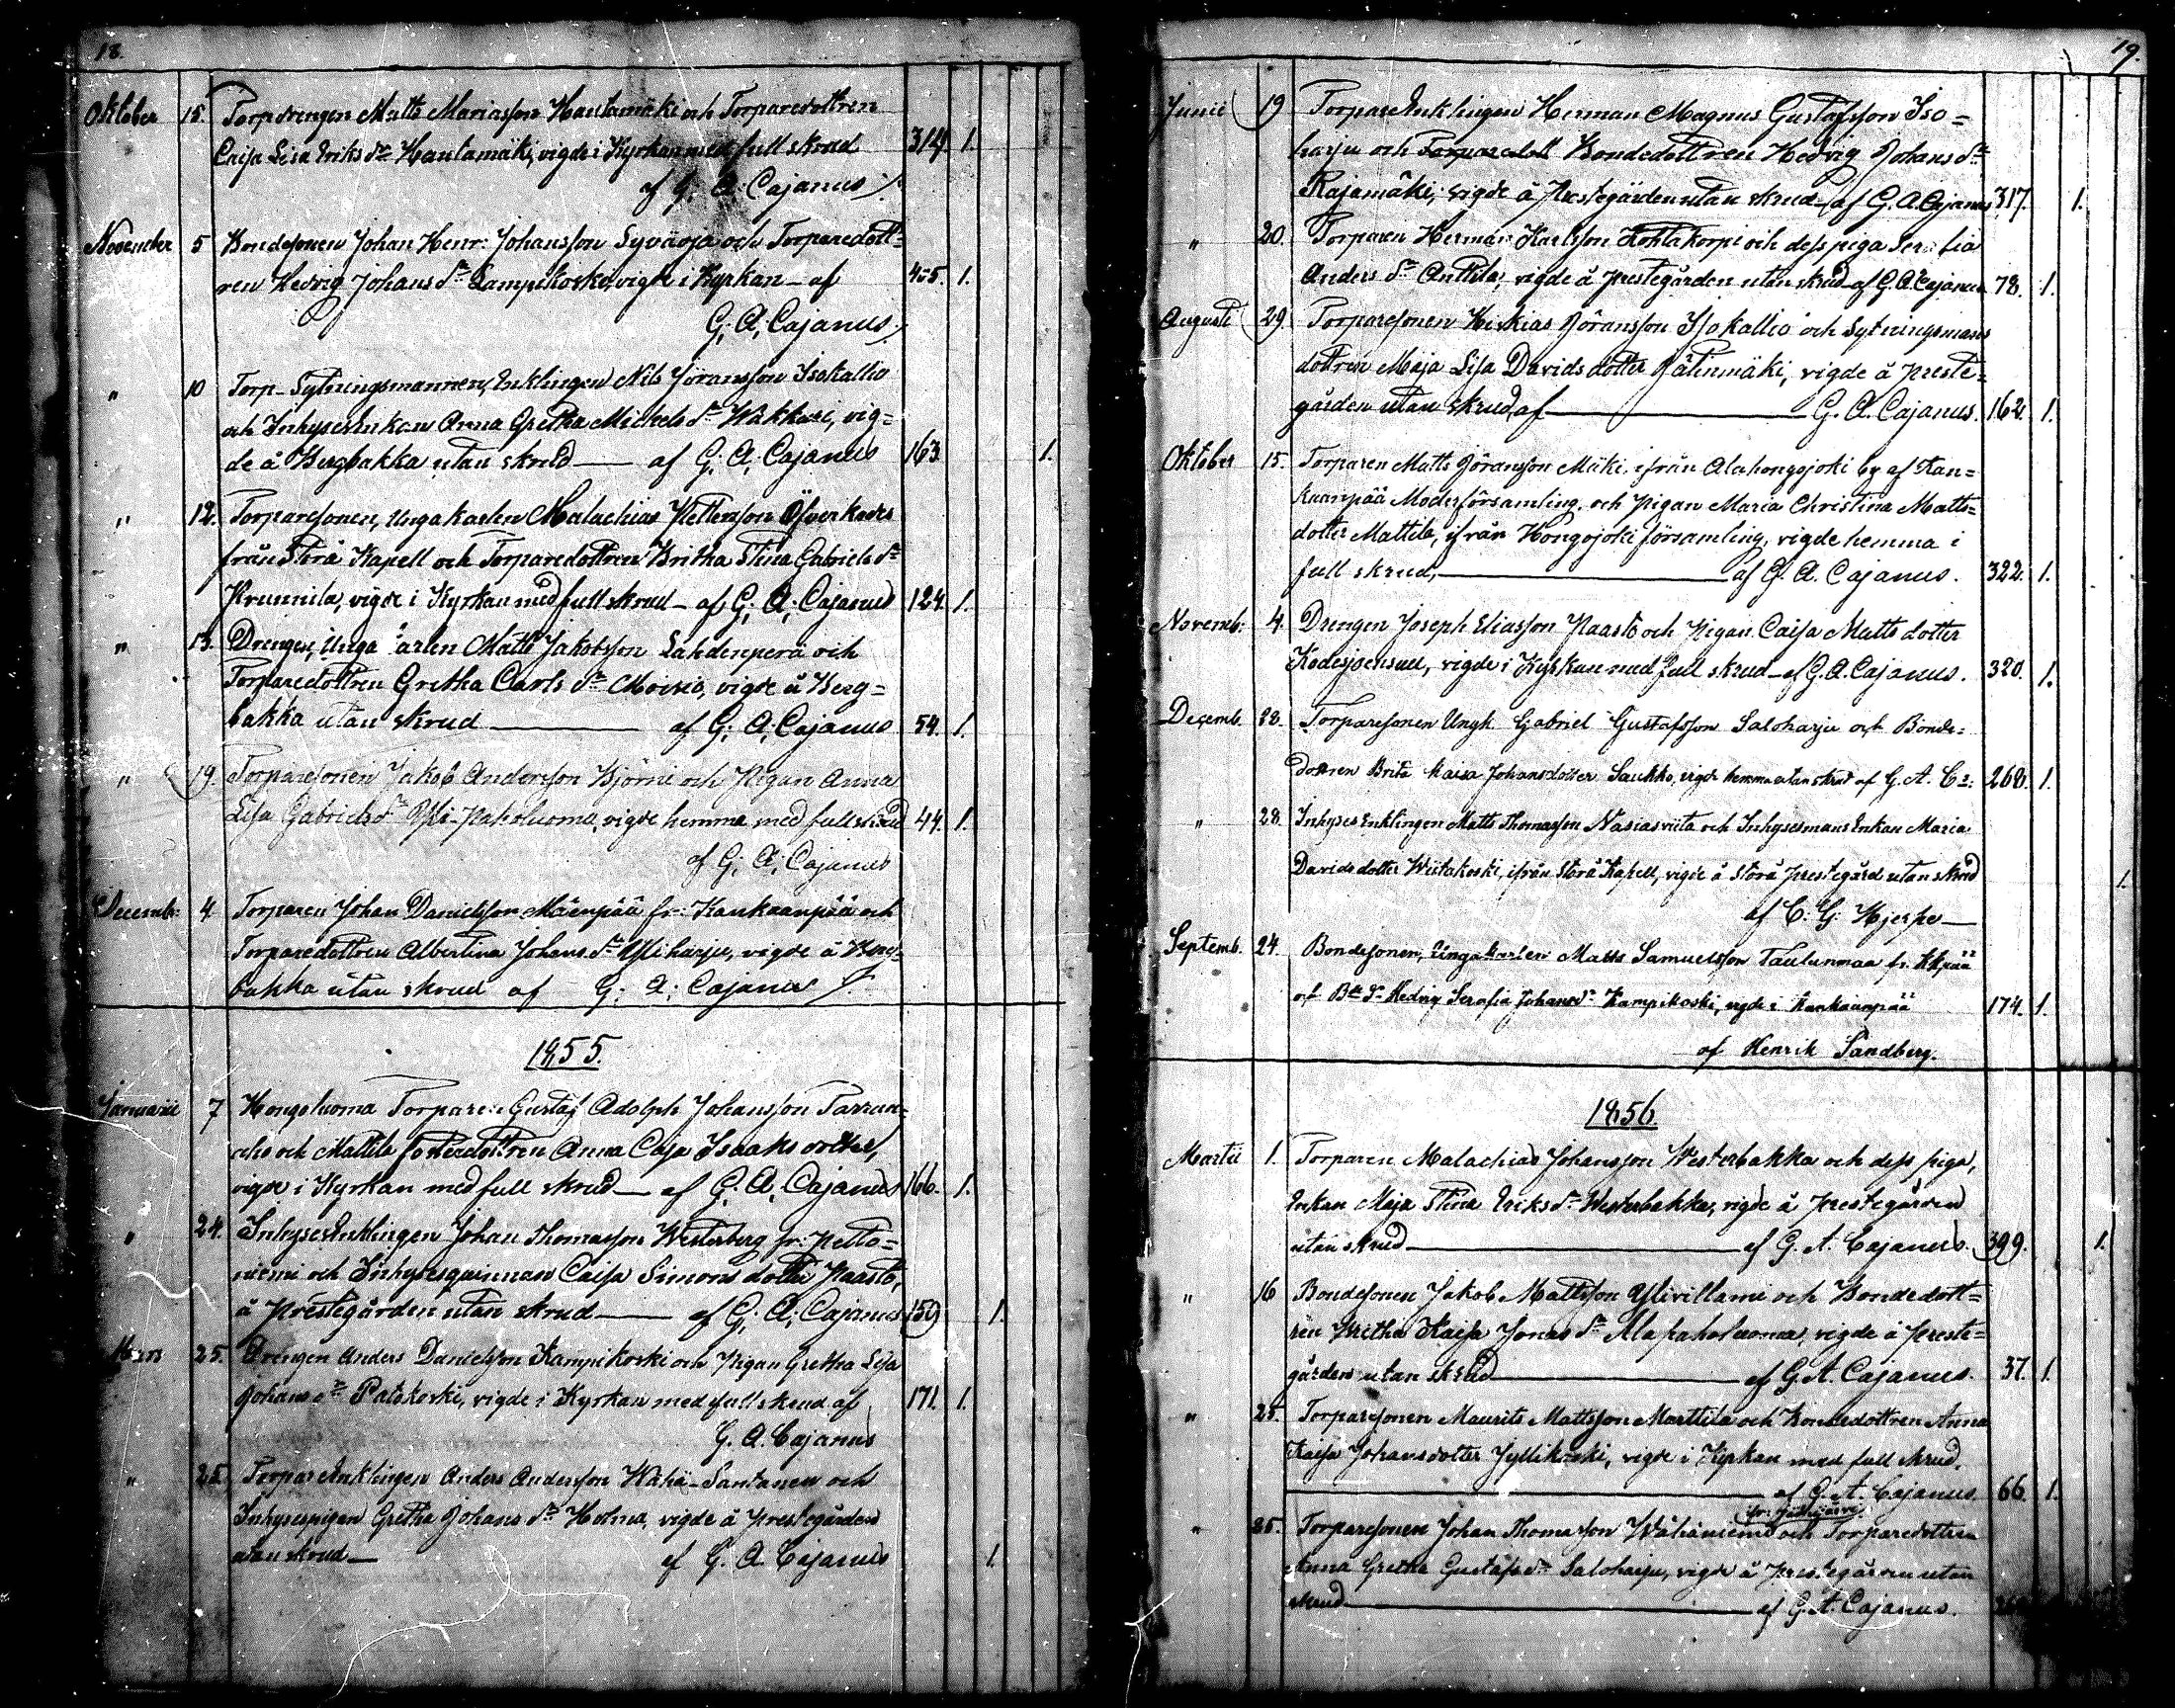 18.
Oktober 15. Torpdrengen Matts Mariasson Hautamäki och Torparedottren
Caisa Lisa Eriks dr Hautamäki, vigde i Kyrkan med full skrud 314. 1.
af G. A. Cajanus /.
November 5 Bondesonen Johan Henr: Johansson Syväoja och Torparedott=
ren Hedvig Johans dr Lampikoski, vigde i Kyrkan - af 1.
G. A. Cajanus /.
" 10 Torp-Sytningsmannen, Enklingen Nils Jöransson Isokallio
och Inhyses Enkan Anna Gretha Michels dr Wäkkäri, vig=
de å Bergbakka utan skrud — af G. A. Cajanus 163 1.
" 12. Torparesonen, Ungakarlen Malachias Pettersson Öfverkoers
från Storå Kapell och Torparedottren Britha Stina Gabriels dr
Krumila, vigde i Kyrkan med full skrud - af G. A. Cajanus 124. 1.
" 13. Drengen, Unga arlen Matts Jakobsson Lahdenperä och
Torparedottren Gretha Carls dr Moisio, vigde å Berg=
bakka utan skrud — af G. A. Cajanus 54. 1.
" 19. Torparesonen Jakob Andersson Björni och Pigan Anna
Lisa Gabriels dr Yli-Paholuoma, vigde hemma med full skrud 44. 1.
af G. A. Cajanus
Decemb: 4 Torparen Johan Danielsson Mäenpää fr: Kankaanpää och
Torparedottren Albertina Johans dr Yliharju, vigde å Berg-
bakka utan skrud af G. A. Cajanus /.
1855.
Januarii 7 Hongoluoma Torparen Gustaf Adolph Johansson
och Mattila fosterdottren Anna Caisa Isaaks dotter,
vigde i Kyrkan med full skrud — af G. A. Cajanus 166. 1.
" 24. Inhyses Enklingen Johan Thomasson Westerberg fr: Petto=
niemi och Inhysesqvinnan Caisa Simons dotter Paasto,
å Prestegården utan skrud — af G. A. Cajanus 159 1.
Mars 25. Drengen Anders Danielsson Kampikoski och Pigan Gretha Lisa
Johans dr Patokoski, vigde i Kyrkan med full skrud af 171. 1.
G. A. Cajanus
" 25. Torpare Enklingen Anders Andersson Wähä-Santanen och
Inhysespigan Gretha Johans dr Holma, vigde å Prestegården
utan skrud — af G. A. Cajanus 1.
19.
Junii 19 Torpare Enklingen Herman Magnus Gustafsson Iso=
harju och Torparedott Bondedottren Hedvig Johans dr
Rajamäki, vigde å Prestegården utan skrud af G. A. Cajanus 317. 1.
" 20. Torparen Herman Karlsson Kohtakorpi och dess piga Serafia
Anders dr Anttila, vigde å prestegården utan skrud af G. A. Cajanus 78. 1.
Augusti 29. Torparesonen Heskias Jöransson Isokallio och Sytningsmans
dottren Maja Lisa Davids dotter Jätinmäki, vigde å preste=
gården utan skrud, af — G. A. Cajanus. 162. 1.
Oktober 15. Torparen Matts Jöransson Mäki ifrån Alahongojoki by af Kan=
kaanpää Moderförsamling, och Pigan Maria Christina Matts=
dotter Mattila, ifrån Hongojoki församling, vigde hemma i
full skrud, — af G. A. Cajanus. 322. 1.
Novemb: 4. Drengen Joseph Eliasson Paasto och Pigan Caisa Matts dotter
Kodesjoensuu, vigde i Kyrkan med full skrud - af G. A. Cajanus. 320. 1.
Decemb. 28. Torparesonen Ungk Gabriel Gustafsson Saloharju och Bonde=
dottren Brita Kaisa Johansdotter Saukko, vigde hemma utan skrud af G. A. Cs: 268. 1.
" 28. Inhyses Enklingen Matts Thomasson Nasiasviita och Inhysesmans Enkan Maria
Davids dotter Wiitakoski, ifrån Storå Kapell, vigde å Storå prestegård utan skrud 1.
af C. G. Hjerpe —
Septemb. 24. Bondesonen, Ungakarlen Matts Samuelsson Taulunmaa fr. Kkpää
och Bde dr Hedvig Serafia Johans dr Kampikoski, vigde i Kankaanpää 174. 1.
af Henrik Sandberg.
1856.
Martii 1. Torparen Malachias Johansson Westerbakka och dess piga,
Enkan Maja Stina Eriks dr Westerbakka, vigde å prestegården
utan skrud — af G. A. Cajanus. 399. 1.
" 16 Bondesonen Jakob Mattsson Ylivillami och Bondedott=
ren Britha Kaisa Jonas dr Alapaholuoma, vigde å preste=
gården utan skrud — af G. A. Cajanus. 37. 1.
" 25. Torparesonen Maurits Mattsson Marttila och Bondedottren Anna
Kaisa Johansdotter Jyllikoski, vigde i Kyrkan med full skrud.
— af G. A. Cajanus 66. 1.
" 25. Torparesonen Johan Thomasson Wähäniemi och Torparedottren
Anna Gretha Gustafs dr Saloharju, vigde å prestegården utan
skrud — af G. A. Cajanus.